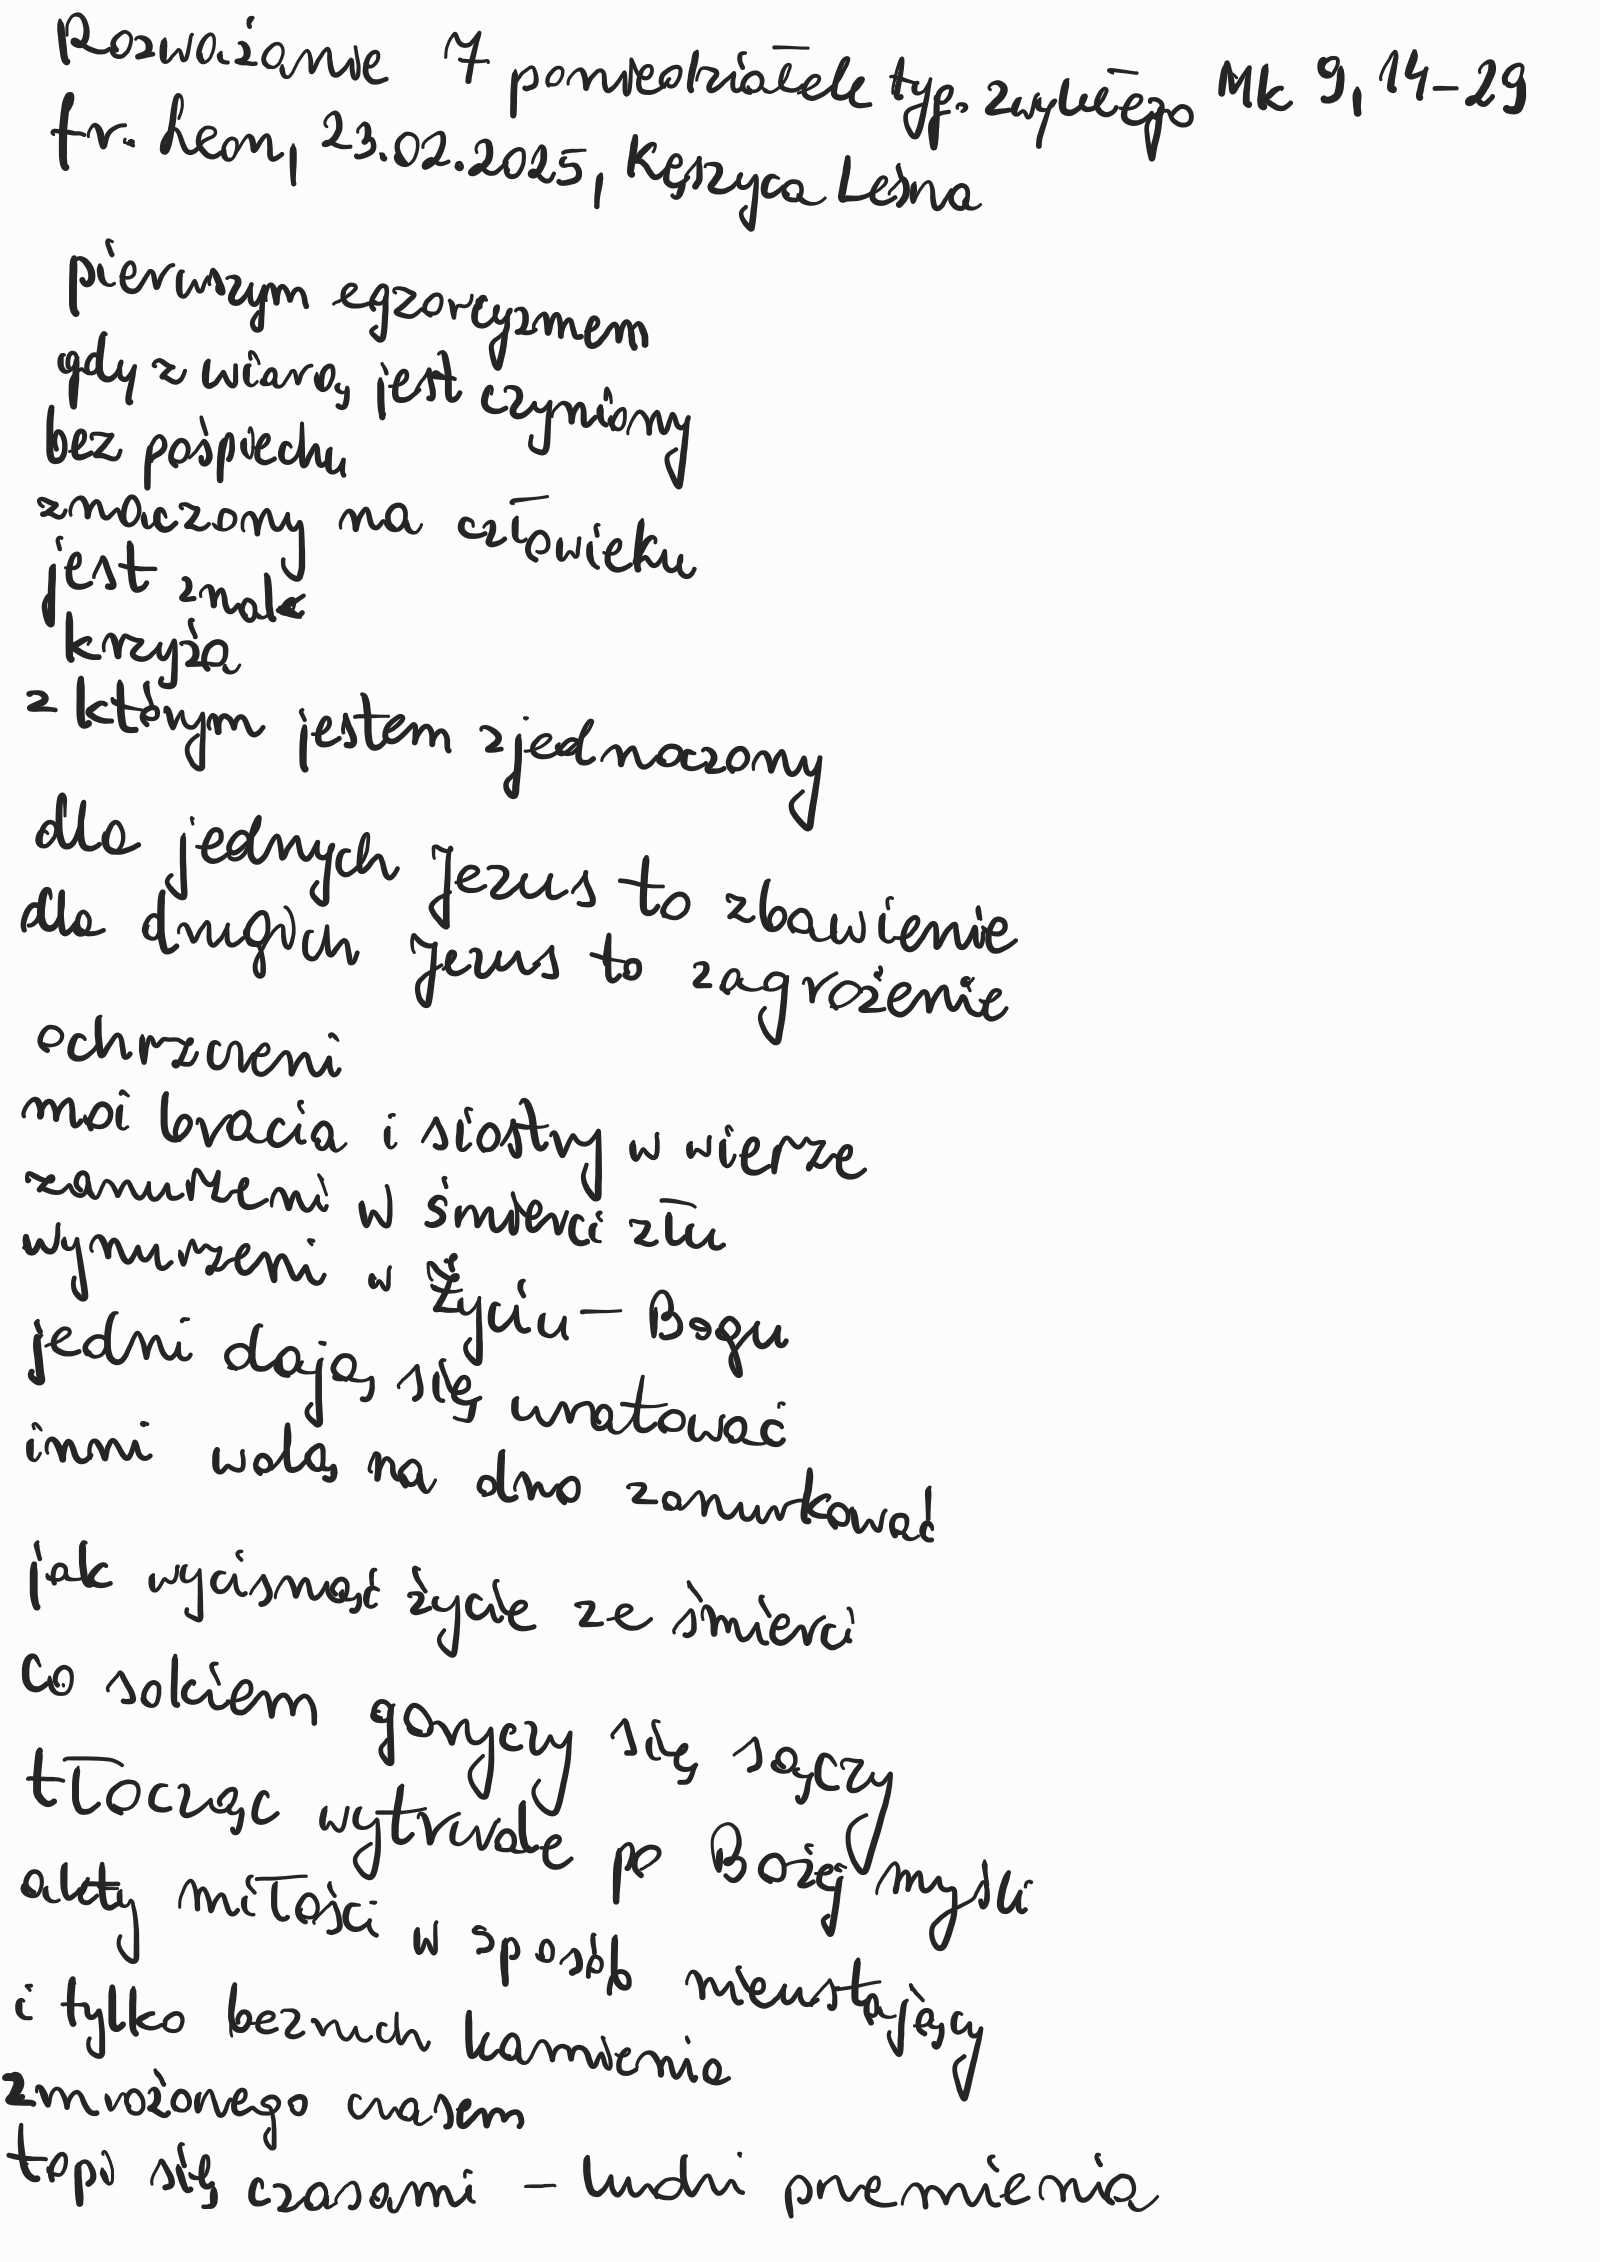 Rozważanie 7 poniedziałek tyg. zwykłego Mk 9, 14-29
fr. Leon, 23.02.2025, Kęszyca Leśna
pierwszym egzorcyzmem
gdy z wiarą jest czyniony
bez pośpiechu
znaczony na człowieku
jest znak
krzyża
z którym jestem zjednoczony
dla jednych Jezus to zbawienie
dla drugich Jezus to zagrożenie
ochrzczeni
moi bracia i siostry w wierze
zanurzeni w śmierci złu
wynurzeni w życiu - Bogu
jedni dają się uratować
inni wolą na dno zanurkować
jak wycisnąć życie ze śmierci
co sokiem goryczy się sączy
tłocząc wytrwale po Bożej myśli
akty miłości w sposób nieustający
i tylko bezruch kamienia
zmrożonego czasem
topi się czasami - ludzi przemienia